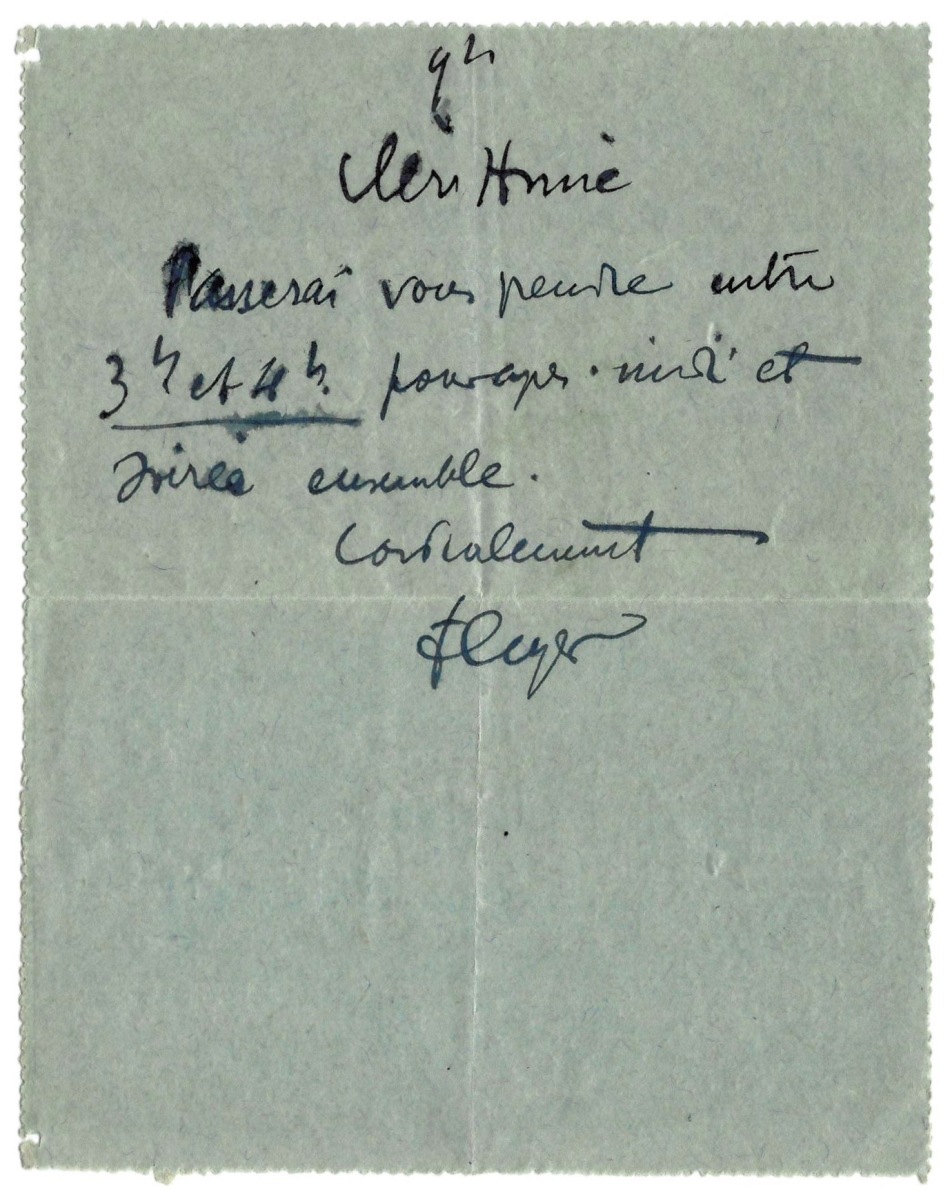 9h
Cher Ami
Passerai vous prendre entre
3h et 4h. pour après-midi et
soirée ensemble.
Cordialement